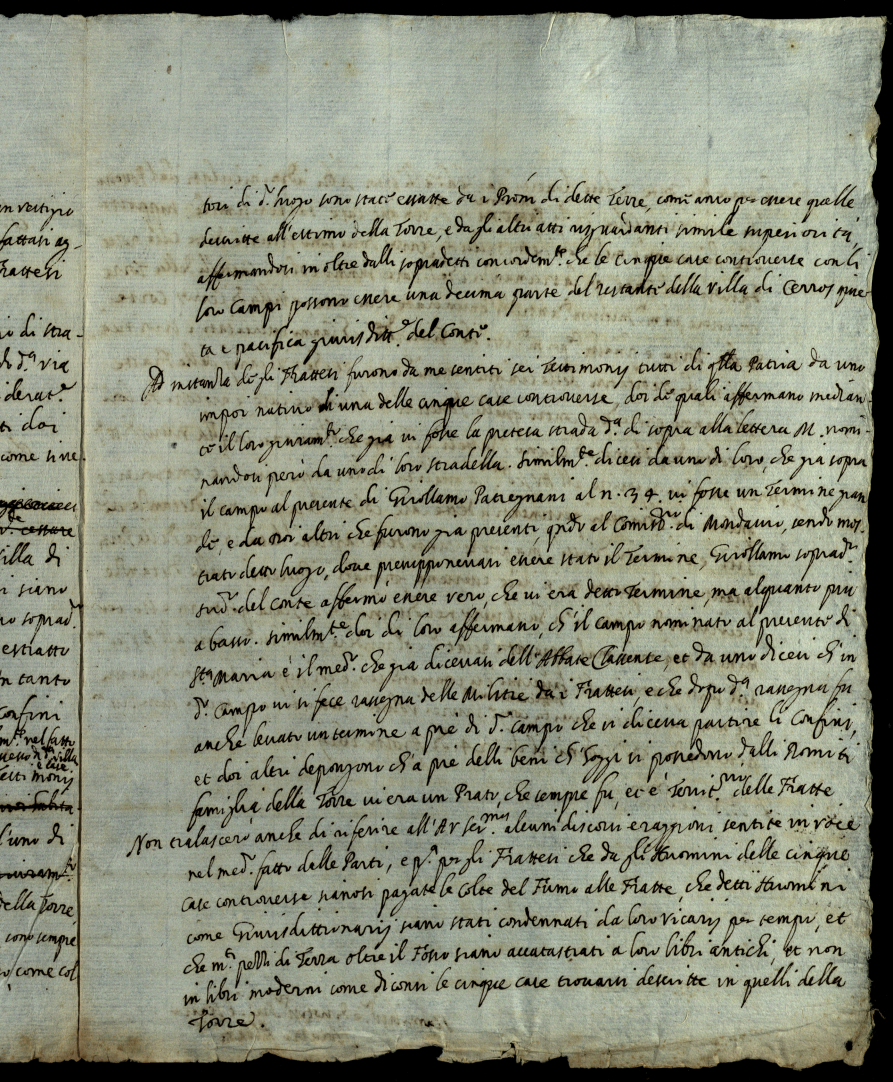 an vestigio
fattasi ag-
Frattesi
io di stra-
di d.ª via
iderat.e
ti doi
come si ve-
cessare
villa di
i siano
no soprad.
estratto
in tanto
Confini
m.e nel fatto
villa
e case
Testimonij
l'uno di
della Torre
sono sempre
so, come col
tori di d.º luogo sono state essatte da i di dette Terre, come anco per essere quelle
descritte all'estimo della Torre, e da gli altri atti risguardanti simile superiorità,
affirmandosi inoltre dalli sopradetti concordem.te che le cinque case controverse con li
loro Campi possono essere una decima parte del restante della Villa di Cerros quie-
ta e pacifica giurisditt.e del Conte.
Ad instanza de gli Frattesi furono da me sentiti sei Testimonij tutti di q.lla Patria da uno
impoi nativo di una delle cinque case controverse, doi de quali affermano median-
te il loro giuram.to che già vi fosse la pretesa strada d.ª di sopra alla lettera M. nomi-
nandosi però da uno di loro stradella. Similm.te dicesi da uno di loro, che già sopra
il campo al presente di Girollamo Patregnani al n. 34. vi fosse un Termine gran-
de, e da doi altri che furono già presenti, q.ndo al Comiss.rio di Mondavio, sendo mos-
trato detto luogo, dove presupponevasi essere stato il Termine, Girollamo soprad.º
del Conte affermò essere vero, che vi era detto Termine, ma alquanto più
a basso. Similm.te doi di loro affermano, ch'il campo nominato al presente di
S.ta Maria è il med.º che già dicevasi dell'Abbate Chiavente, et da uno dicesi ch'in
d.º Campo vi si fece rassegna delle Militie da i Frattesi, e che dopo d.ª rassegna fu
anche levato un termine a piè di d.º campo che si diceva partire li Confini,
et doi altri depongono ch'a piè delli beni ch'hoggi si possedono dalli Romiti
famiglia della Torre vi era un Prato, che sempre fu, et è Territ.rio delle Fratte
Non tralascerò anche di riferire all'AV Ser.ma alcuni discorsi e raggioni sentite in voce
nel med.º fatto dalle Parti, e p.ª per gli Frattesi che da gli Huomini delle cinque
case controverse siano si pagate le Colte del Fumo alle Fratte, che detti Huomini
come Giurisdittionarij siano stati condennati da loro Vicarij per tempo, et
che m.ti pezzi di Terra oltre il Fosso siano accatastrati a loro libri antichi, et non
in libri moderni come diconsi le cinque case trovarsi descritte in quelli della
Torre.